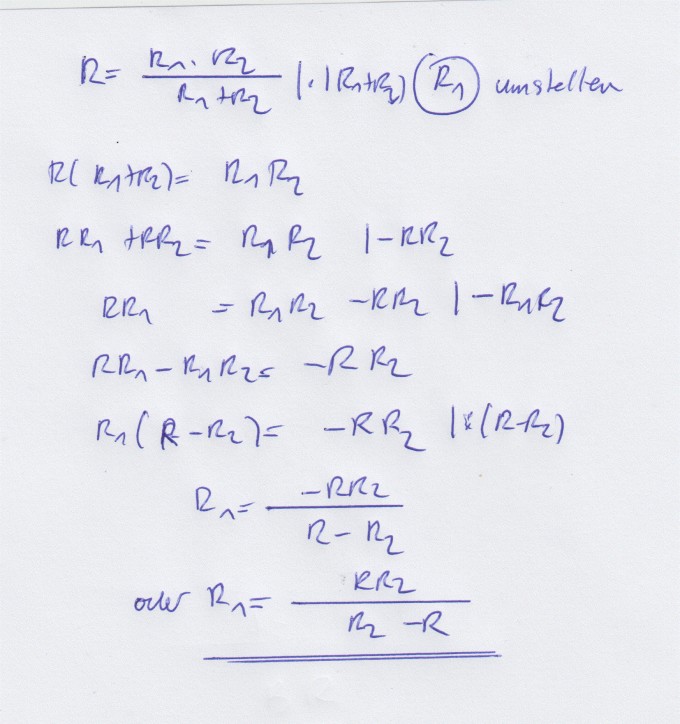 R = (R₁ · R₂)/(R₁ + R₂) | · (R₁+R₂) R₁ umstellen
R( R₁+R₂) = R₁ R₂
RR₁ + RR₂ = R₁ R₂ | - RR₂
RR₁ = R₁R₂ - RR₂ | - R₁R₂
RR₁ - R₁R₂ = - R R₂
R₁ ( R - R₂ ) = - R R₂ | : (R-R₂)
R₁ = (-RR₂)/(R - R₂)
oder R₁ = (RR₂)/(R₂ - R)